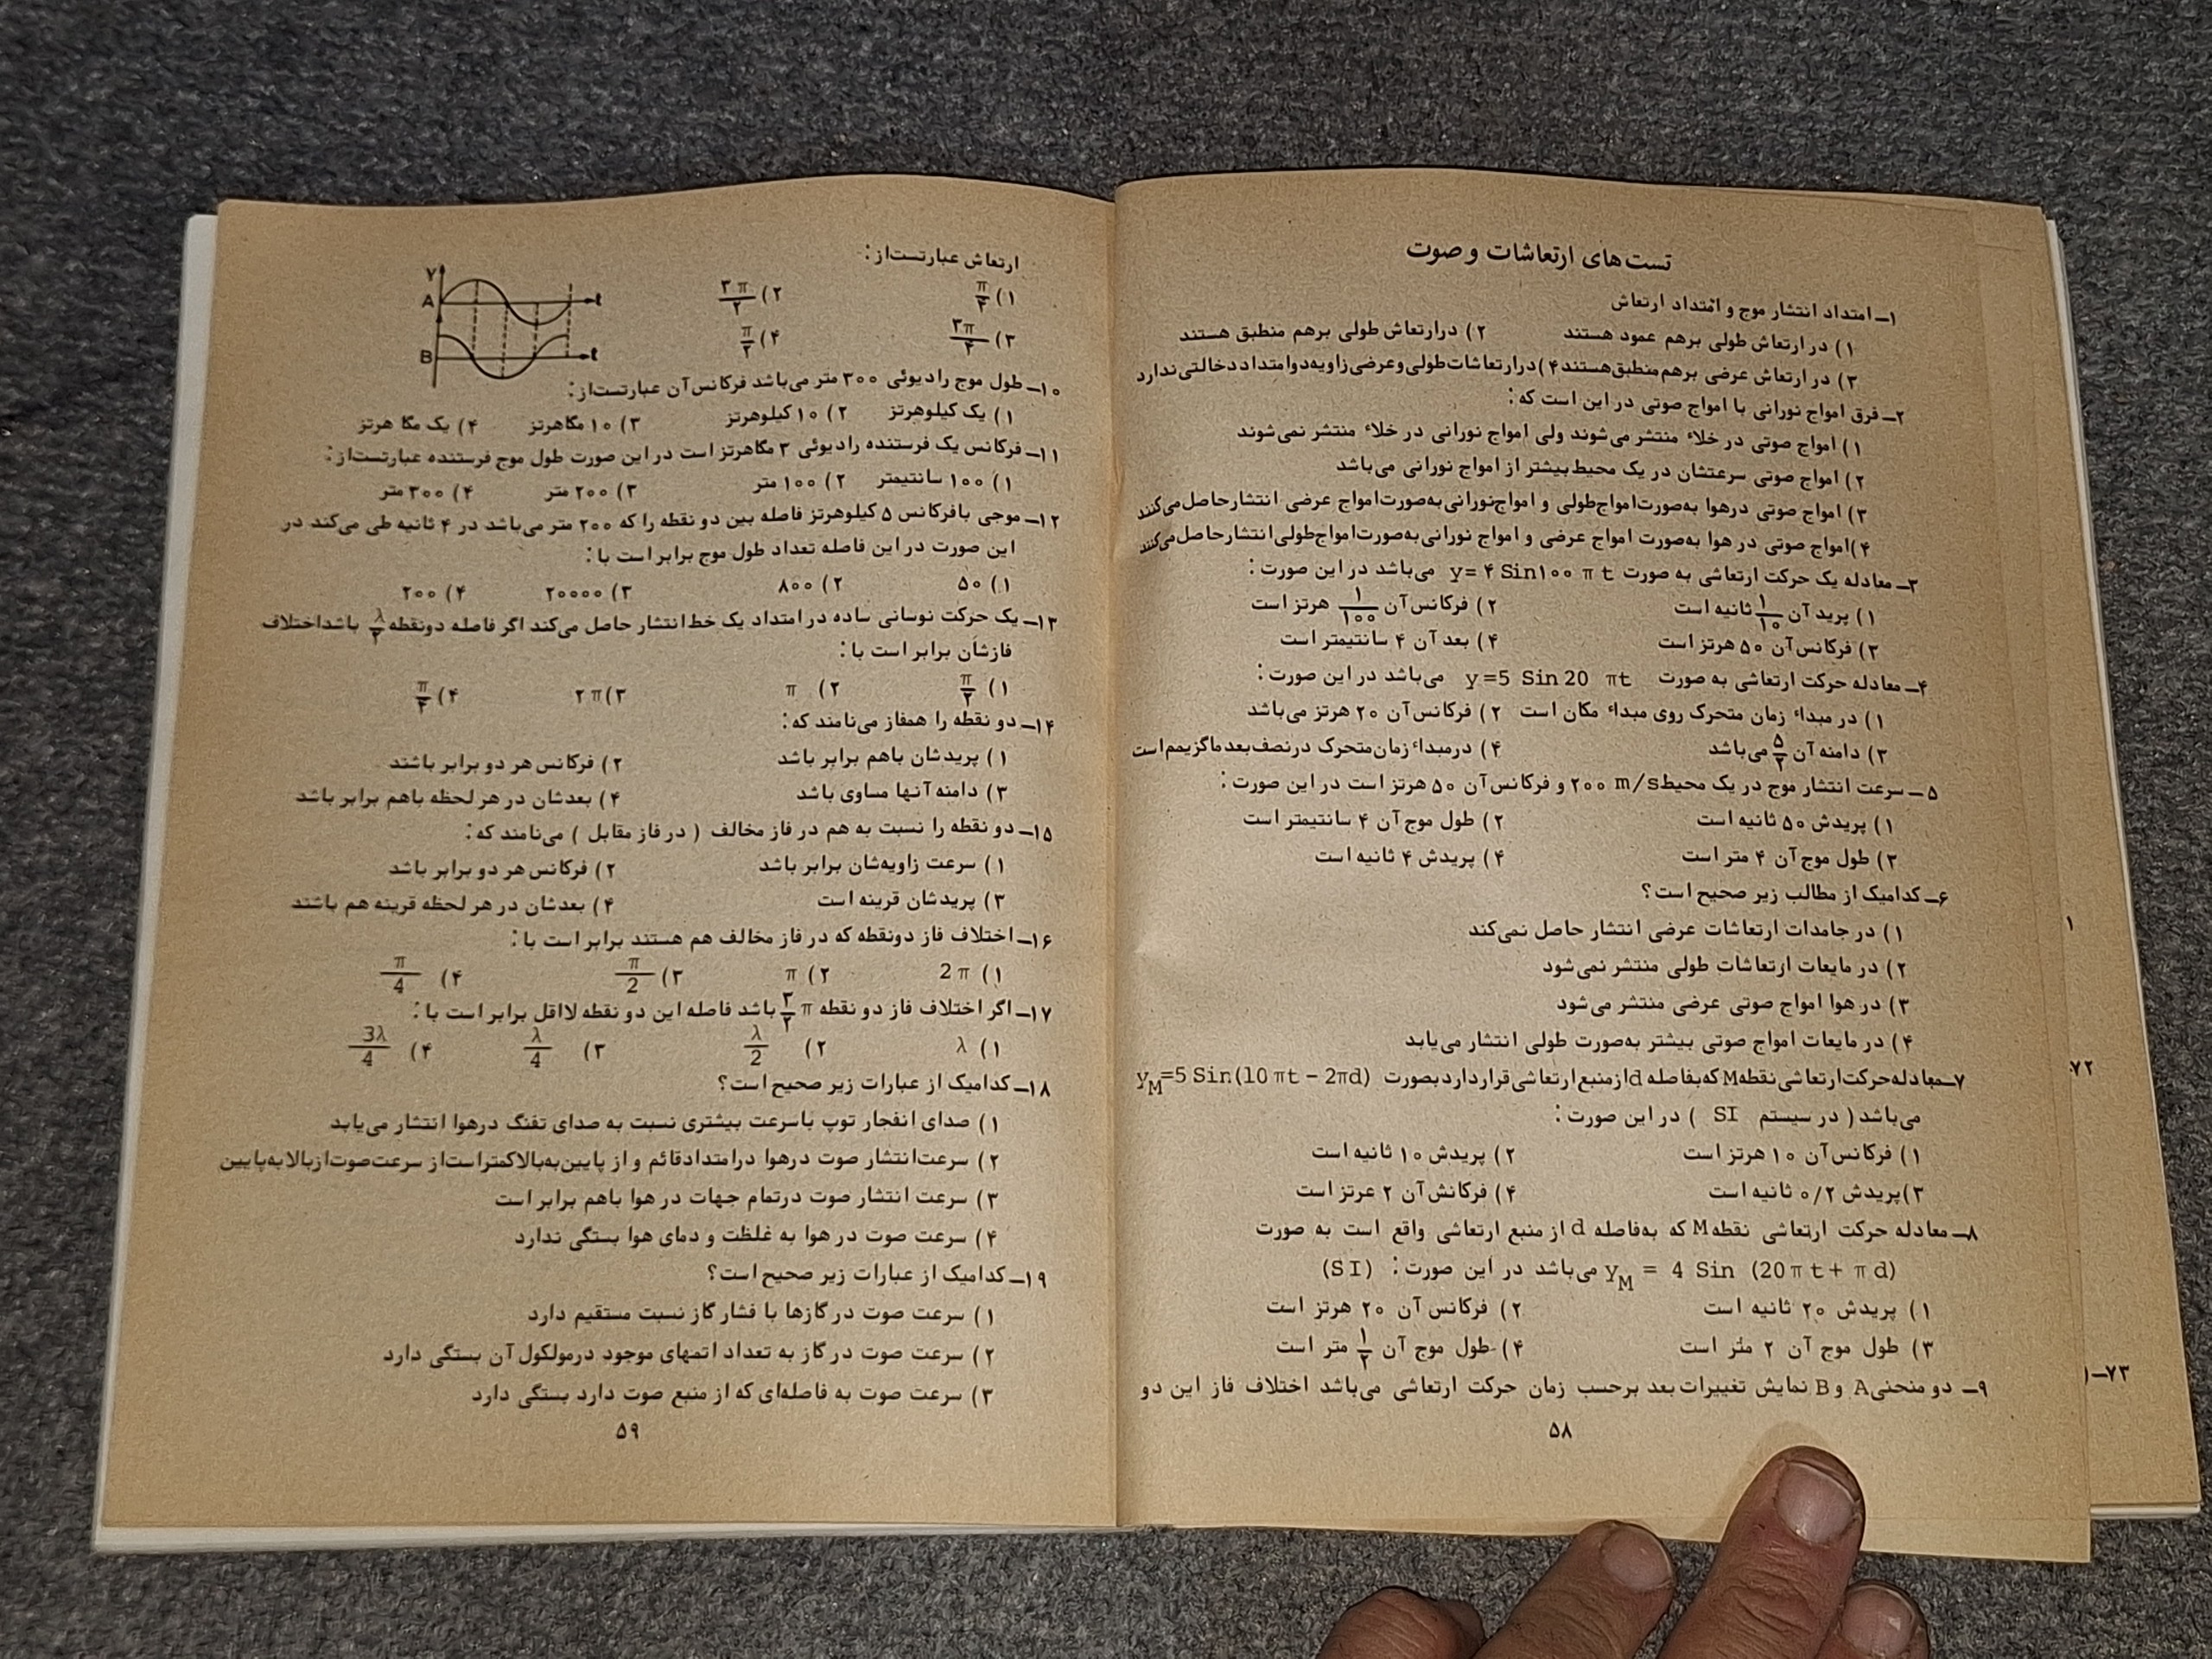 تست‌های ارتعاشات و صوت
۱ــ امتداد انتشار موج و امتداد ارتعاش
۱) در ارتعاش طولی برهم عمود هستند ۲) درارتعاش طولی برهم منطبق هستند
۳) در ارتعاش عرضی برهم منطبق هستند ۴) درارتعاشات طولی و عرضی زاویه دو امتداد دخالتی ندارد
۲ــ فرق امواج نورانی با امواج صوتی در این است که:
۱) امواج صوتی در خلاء منتشر می‌شوند ولی امواج نورانی در خلاء منتشر نمی‌شوند
۲) امواج صوتی سرعتشان در یک محیط بیشتر از امواج نورانی می‌باشد
۳) امواج صوتی درهوا به‌صورت امواج طولی و امواج نورانی به‌صورت امواج عرضی انتشار حاصل می‌کنند
۴) امواج صوتی در هوا به‌صورت امواج عرضی و امواج نورانی به‌صورت امواج طولی انتشار حاصل می‌کنند
۳ــ معادله یک حرکت ارتعاشی به صورت y= ۴ Sin۱۰۰ π t می‌باشد در این صورت:
۱) پرید آن ۱/۱۰ ثانیه است ۲) فرکانس آن ۱/۱۰۰ هرتز است
۳) فرکانس آن ۵۰ هرتز است ۴) بعد آن ۴ سانتیمتر است
۴ــ معادله حرکت ارتعاشی به صورت y=5 Sin 20 πt می‌باشد در این صورت:
۱) در مبداء زمان متحرک روی مبداء مکان است ۲) فرکانس آن ۲۰ هرتز می‌باشد
۳) دامنه آن ۵/۲ می‌باشد ۴) درمبداء زمان متحرک درنصف بعد ماگزیمم است
۵ــ سرعت انتشار موج در یک محیط ۲۰۰ m/s و فرکانس آن ۵۰ هرتز است در این صورت:
۱) پریدش ۵۰ ثانیه است ۲) طول موج آن ۴ سانتیمتر است
۳) طول موج آن ۴ متر است ۴) پریدش ۴ ثانیه است
۶ــ کدامیک از مطالب زیر صحیح است؟
۱) در جامدات ارتعاشات عرضی انتشار حاصل نمی‌کند
۲) در مایعات ارتعاشات طولی منتشر نمی‌شود
۳) در هوا امواج صوتی عرضی منتشر می‌شود
۴) در مایعات امواج صوتی بیشتر به‌صورت طولی انتشار می‌یابد
۷ــ معادله حرکت ارتعاشی نقطه M که بفاصله d ازمنبع ارتعاشی قرار دارد بصورت yM=5 Sin(10 πt − 2πd)
می‌باشد ( در سیستم SI ) در این صورت:
۱) فرکانس آن ۱۰ هرتز است ۲) پریدش ۱۰ ثانیه است
۳) پریدش ۰/۲ ثانیه است ۴) فرکانش آن ۲ عرتز است
۸ــ معادله حرکت ارتعاشی نقطه M که به‌فاصله d از منبع ارتعاشی واقع است به صورت
yM = 4 Sin (20 π t + π d) می‌باشد در این صورت: (SI)
۱) پریدش ۲۰ ثانیه است ۲) فرکانس آن ۲۰ هرتز است
۳) طول موج آن ۲ متر است ۴) طول موج آن ۱/۲ متر است
۹ــ دو منحنی A و B نمایش تغییرات بعد برحسب زمان حرکت ارتعاشی می‌باشد اختلاف فاز این دو
۵۸
۱
۷۲
۷۳ــ
ارتعاش عبارتست‌از:
۱) π/۴ ۲) ۳π/۲
۳) ۳π/۴ ۴) π/۲
Y
A
t
B
t
۱۰ــ طول موج رادیوئی ۳۰۰ متر می‌باشد فرکانس آن عبارتست‌از:
۱) یک کیلوهرتز ۲) ۱۰ کیلوهرتز ۳) ۱۰ مگاهرتز ۴) یک مگا هرتز
۱۱ــ فرکانس یک فرستنده رادیوئی ۳ مگاهرتز است در این صورت طول موج فرستنده عبارتست‌از:
۱) ۱۰۰ سانتیمتر ۲) ۱۰۰ متر ۳) ۲۰۰ متر ۴) ۳۰۰ متر
۱۲ــ موجی بافرکانس ۵ کیلوهرتز فاصله بین دو نقطه را که ۲۰۰ متر می‌باشد در ۴ ثانیه طی می‌کند در
این صورت در این فاصله تعداد طول موج برابر است با:
۱) ۵۰ ۲) ۸۰۰ ۳) ۲۰۰۰۰ ۴) ۲۰۰
۱۳ــ یک حرکت نوسانی ساده در امتداد یک خط انتشار حاصل می‌کند اگر فاصله دونقطه λ/۲ باشد اختلاف
فازشان برابر است با:
۱) π/۲ ۲) π ۳) ۲π ۴) π/۴
۱۴ــ دو نقطه را همفاز می‌نامند که:
۱) پریدشان باهم برابر باشد ۲) فرکانس هر دو برابر باشند
۳) دامنه آنها مساوی باشد ۴) بعدشان در هر لحظه باهم برابر باشد
۱۵ــ دو نقطه را نسبت به هم در فاز مخالف ( در فاز مقابل ) می‌نامند که:
۱) سرعت زاویه‌شان برابر باشد ۲) فرکانس هر دو برابر باشد
۳) پریدشان قرینه است ۴) بعدشان در هر لحظه قرینه هم باشند
۱۶ــ اختلاف فاز دونقطه که در فاز مخالف هم هستند برابر است با:
۱) 2π ۲) π ۳) π/2 ۴) π/4
۱۷ــ اگر اختلاف فاز دو نقطه ۳/۲ π باشد فاصله این دو نقطه لااقل برابر است با:
۱) λ ۲) λ/2 ۳) λ/4 ۴) 3λ/4
۱۸ــ کدامیک از عبارات زیر صحیح است؟
۱) صدای انفجار توپ باسرعت بیشتری نسبت به صدای تفنگ درهوا انتشار می‌یابد
۲) سرعت انتشار صوت درهوا درامتداد قائم و از پایین به بالا کمتر است از سرعت صوت از بالا به پایین
۳) سرعت انتشار صوت درتمام جهات در هوا باهم برابر است
۴) سرعت صوت در هوا به غلظت و دمای هوا بستگی ندارد
۱۹ــ کدامیک از عبارات زیر صحیح است؟
۱) سرعت صوت در گازها با فشار گاز نسبت مستقیم دارد
۲) سرعت صوت در گاز به تعداد اتمهای موجود درمولکول آن بستگی دارد
۳) سرعت صوت به فاصله‌ای که از منبع صوت دارد بستگی دارد
۵۹